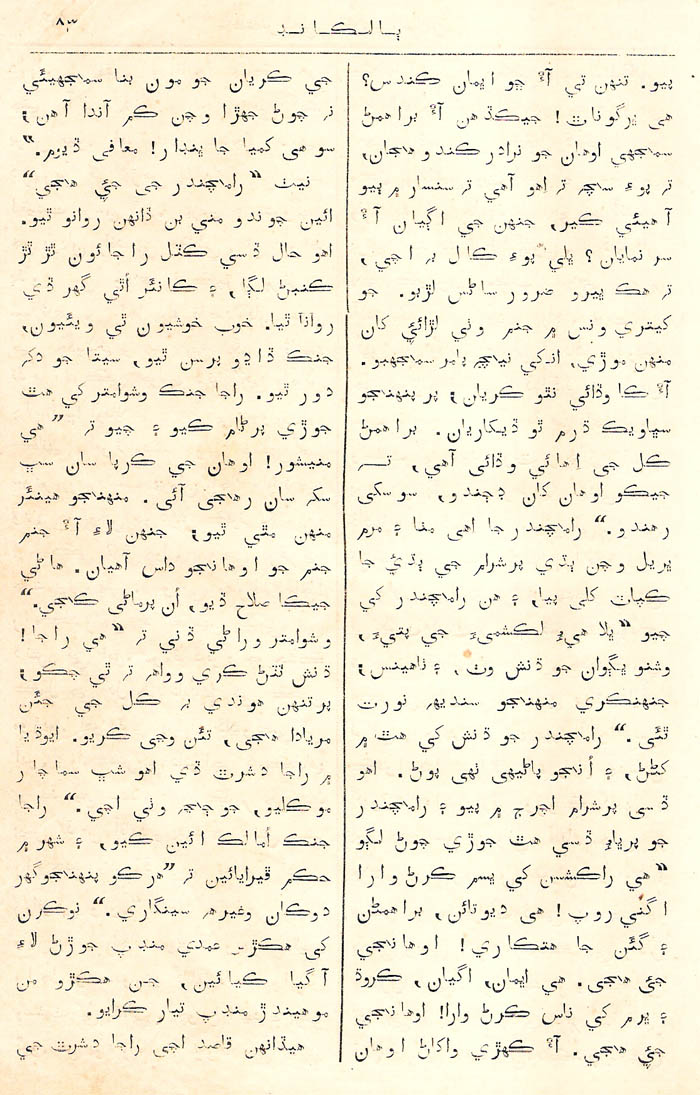 بالڪانڊ
۸۳
ٻيو. تنهن تي آءٌ جو ايمان ڪندس؟
هي ڀرگوناٿ! جيڪڏهن آءٌ براهمڻ
سمجهي اوهان جو نرادر ڪندو هجان،
ته پوءِ سچ ته اهو آهي ته سنسار ۾ ٻيو
آهيئي ڪير، جنهن جي اڳيان آءٌ
سر نمايان؟ ڀلي پوءِ ڪال بہ اچي،
تہ هڪ ڀيرو ضرور ساڻس لڙبو. جو
کيتري ونس ۾ جنم وٺي لڙائيءَ کان
منهن موڙي، ان کي نيچ پامر سمجهبو.
آءٌ ڪا وڏائي نٿو ڪريان؛ پر پنهنجو
سڀاويڪ ڌرم ٿو ڏيکاريان. براهمڻ
ڪل جي اهائي وڏائي آهي، تہ
جيڪو اوهان کان ڊڄندو، سو سکي
رهندو.“ رامچندر جا اهي مٺا ۽ مرم
ڀريل وچن ٻڌي پرشرام جي ٻڌيءَ جا
ڪپاٽ کلي پيا، ۽ هن رامچندر کي
چيو ”ڀلا هيءُ لڪشميءَ جي پتيءَ،
وشنو ڀڳوان جو ڌنش وٺ، ۽ ٺاهينس؛
جنهنڪري منهنجو سنديهہ نورت
ٿئي.“ رامچندر جو ڌنش کي هٿ ۾
کڻڻ، ۽ اُنجو پاڻيهي ٺهي پوڻ. اهو
ڏسي پرشرام اچرج ۾ پيو ۽ رامچندر
جو پرڀاءِ ڏسي هٿ جوڙي چوڻ لڳو
”هي راکشسن کي ڀسم ڪرڻ وارا
اگني روپ! هي ديوتائن، براهمڻن
۽ گئن جا هتڪاري! اوهانجي
جئي هجي. هي ايمان، اگيان، ڪروڌ
۽ ڀرم کي ناس ڪرڻ وارا! اوهانجي
جئي هجي. آءٌ ڪهڙي واکاڻ اوهان
جي ڪريان جو مون بنا سمجهيئي
نہ چوڻ جهڙا وچن ڪم آندا آهن؛
سو هي کميا جا ڀنڊار! معافي ڏيوم.“
نيٺ ”رامچندر جي جئي هجي“
ائين چوندو مني بن ڏانهن روانو ٿيو.
اهو حال ڏسي ڪٽل راجائون ٿڙ ٿڙ
ڪنبڻ لڳا، ۽ ڪانئر اُٿي گهر ڏي
روانا ٿيا. خوب خوشيون ٿي ويئيون،
جنڪ ڏاڍو پرسن ٿيو، سيتا جو دک
دور ٿيو. راجا جنڪ وشوامتر کي هٿ
جوڙي پرڻام ڪيو ۽ چيو تہ ”هي
منيشور! اوهان جي ڪرپا سان سڀ
سک سان رهجي آئي. منهنجو هينئر
منهن مٿي ٿيو؛ جنهن لاءِ آءٌ جنم
جنم جو اوهانجو داس آهيان. هاڻي
جيڪا صلاح ڏيو، اُن پرماڻي ڪجي.“
وشوامتر وراڻي ڏني تہ ”هي راجا!
ڌنش ٽٽڻ ڪري وواهہ تہ ٿي چڪو؛
پر تنهن هوندي بہ ڪل جي جئن
مريادا هجي، تئن وڃي ڪريو. ايوڌيا
۾ راجا دشرٿ ڏي اهو شڀ سماچار
موڪليو، جو ڄڃ وٺي اچي.“ راجا
جنڪ اُمالڪ ائين ڪيو، ۽ شهر ۾
حڪم ڦيرايائين تہ ”هرڪو پنهنجو گهر
دوڪان وغيرهہ سينگاري.“ نوڪرن
کي هڪڙي عمدي منڊپ جوڙڻ لاءِ
آگيا ڪيائين، جن هڪڙو من
موهيندڙ منڊپ تيار ڪرايو.
هيڏانهن قاصد اچي راجا دشرٿ جي